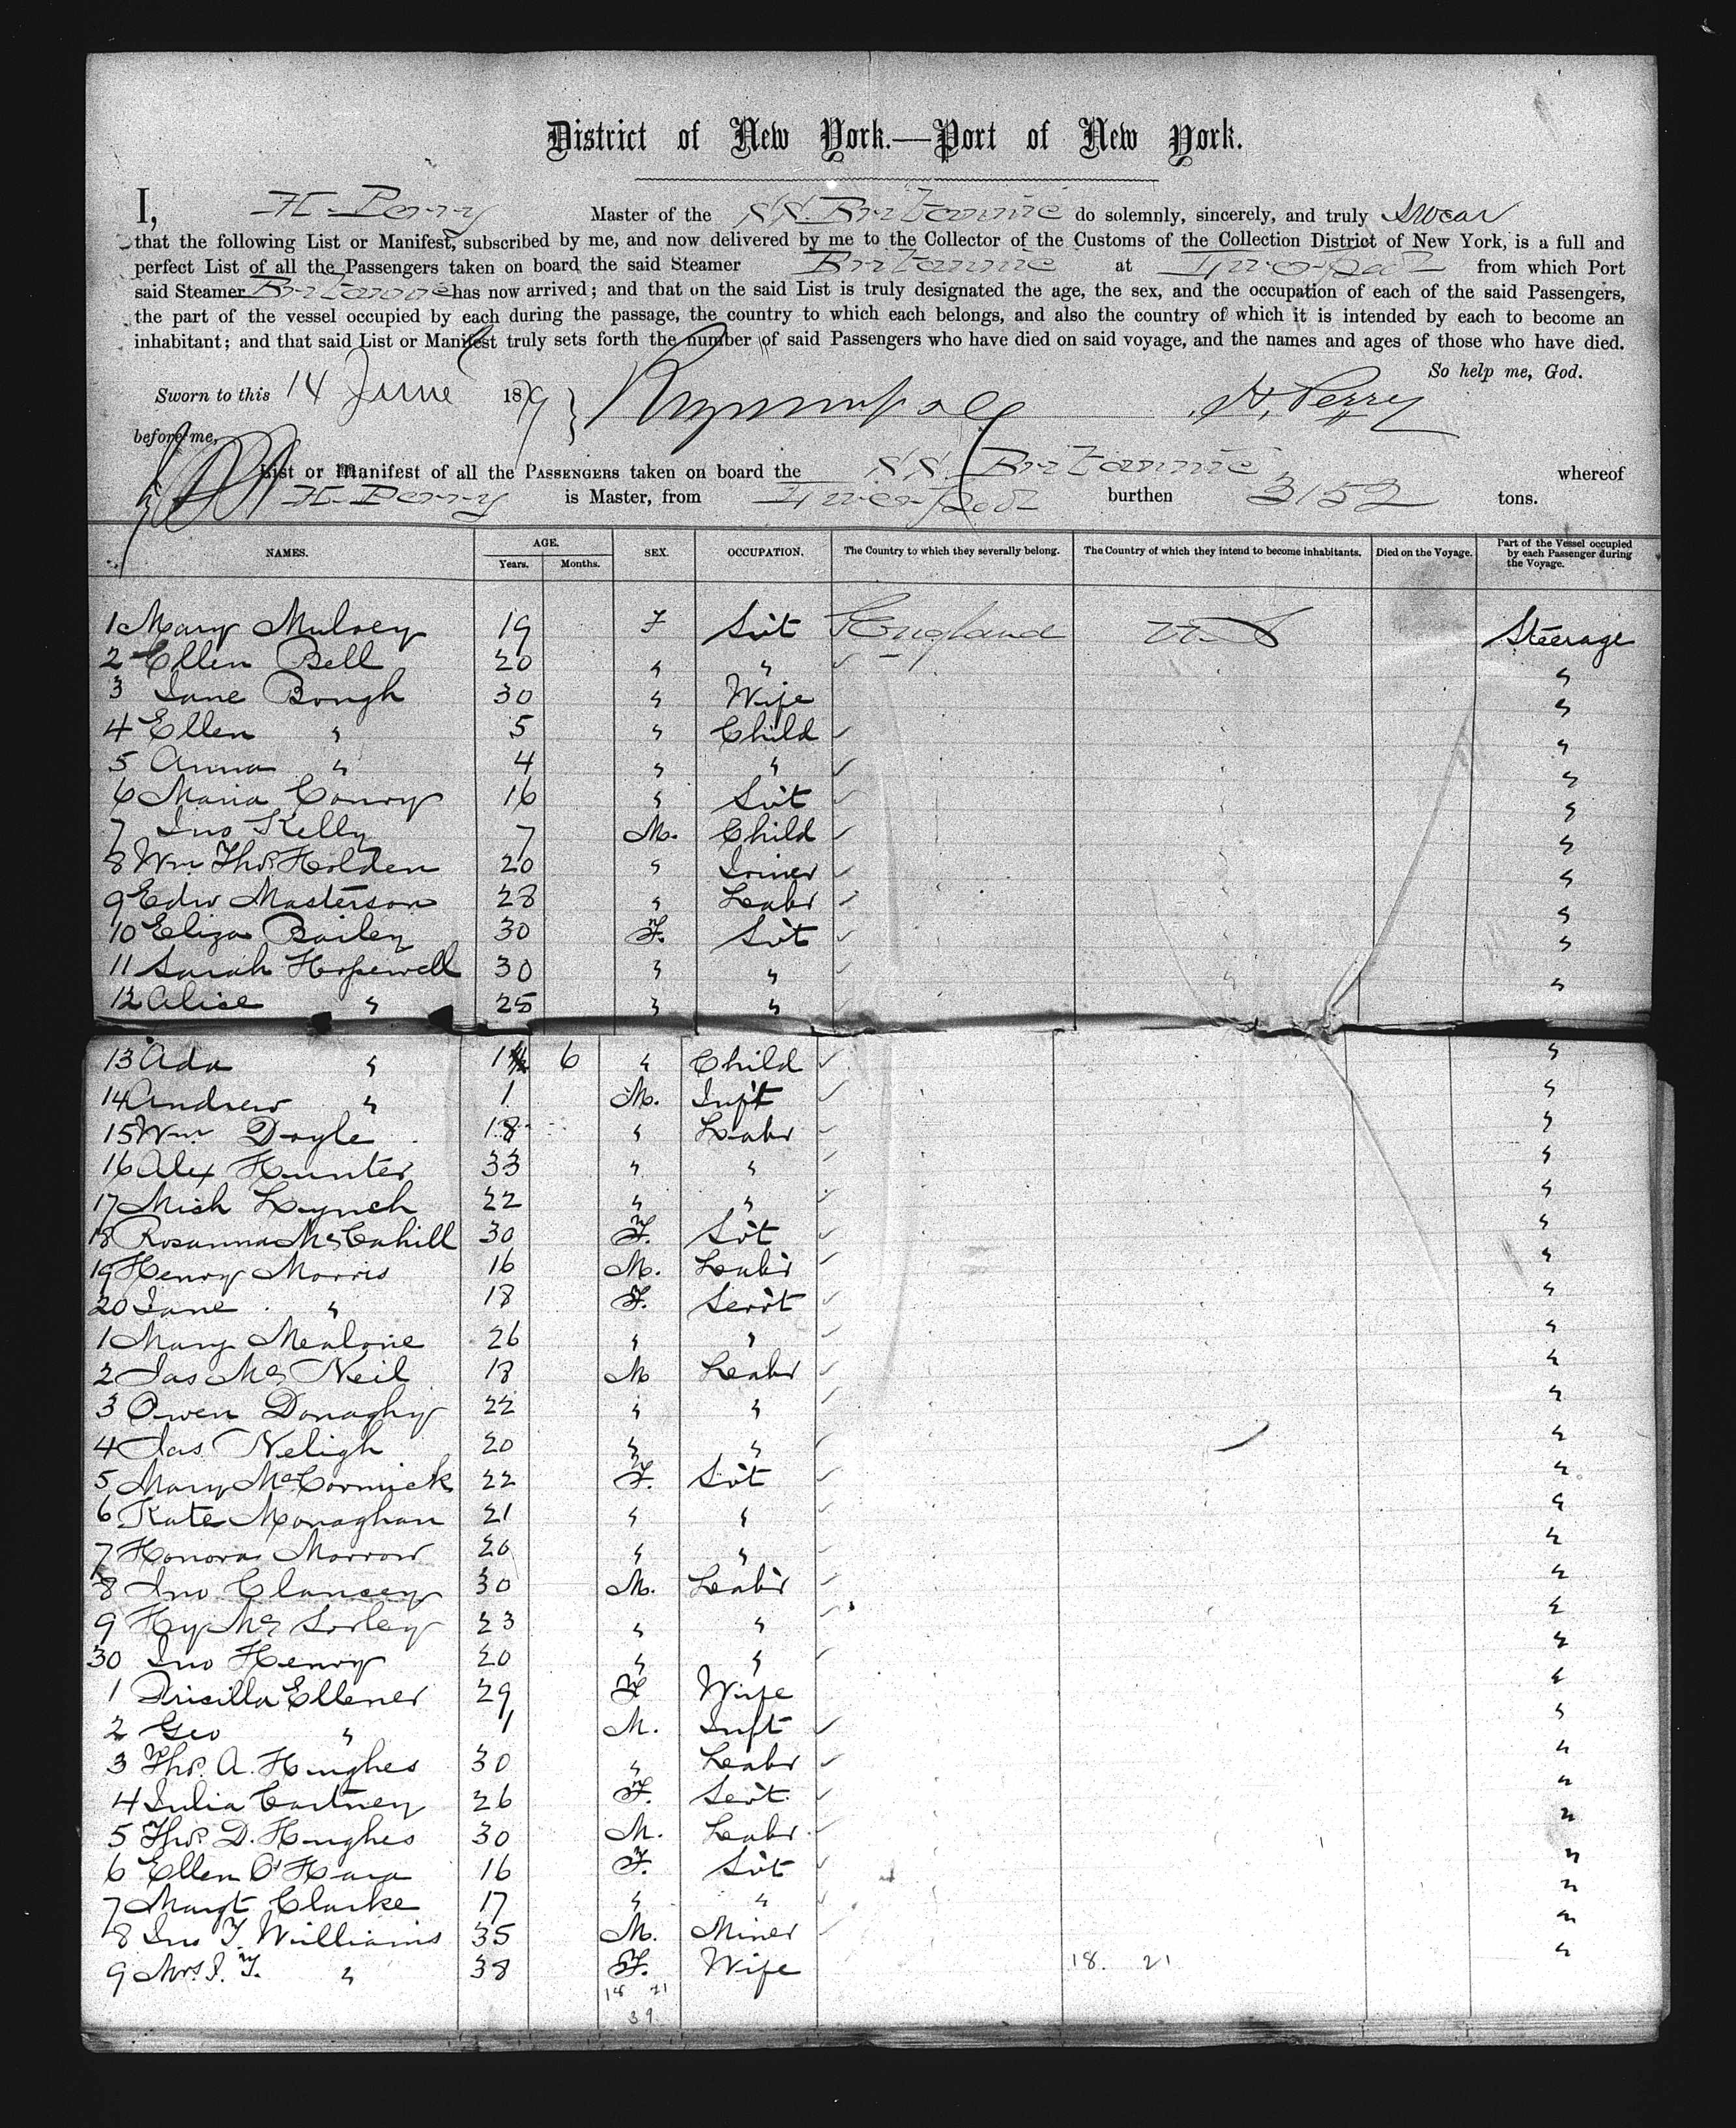 District of New York.—Port of New York.
I, H. Perry Master of the S.S. Britannic do solemnly, sincerely, and truly swear
that the following List or Manifest, subscribed by me, and now delivered by me to the Collector of the Customs of the Collection District of New York, is a full and
perfect List of all the Passengers taken on board the said Steamer Britannic at Liverpool from which Port
said Steamer Britannic has now arrived; and that on the said List is truly designated the age, the sex, and the occupation of each of the said Passengers,
the part of the vessel occupied by each during the passage, the country to which each belongs, and also the country of which it is intended by each to become an
inhabitant; and that said List or Manifest truly sets forth the number of said Passengers who have died on said voyage, and the names and ages of those who have died.
So help me, God.
Sworn to this 14 June 1879 H. Perry
before me,
List or Manifest of all the PASSENGERS taken on board the S.S. Britannic whereof
H. Perry is Master, from Liverpool burthen 3152 tons.
NAMES. AGE. Years. Months. SEX. OCCUPATION. The Country to which they severally belong. The Country of which they intend to become inhabitants. Died on the Voyage. Part of the Vessel occupied by each Passenger during the Voyage.
1 Mary Mulvey 19 F Svt England U.S Steerage
2 Ellen Bell 20 " " "
3 Jane Bough 30 " Wife "
4 Ellen " 5 " Child "
5 Anna " 4 " " "
6 Maria Conry 16 " Svt "
7 Jno Kelly 7 M. Child "
8 Wm Thos. Holden 20 " Joiner "
9 Edw Masterson 28 " Labr "
10 Eliza Bailey 30 F. Svt "
11 Sarah Hopewell 30 " " "
12 Alice " 25 " " "
13 Ada " 1 6 " Child "
14 Andrew " 1 M. Inft "
15 Wm Doyle 18 " Labr "
16 Alex Hunter 33 " " "
17 Mich Lynch 22 " " "
18 Rosanna McCahill 30 F. Svt "
19 Henry Morris 16 M. Labr "
20 Jane " 18 F. Servt "
1 Mary Mealone 26 " " "
2 Jas Mc Neil 18 M Labr "
3 Owen Donaghy 22 " " "
4 Jas Neligh 20 " " "
5 Mary McCormick 22 F. Svt "
6 Kate Monaghan 21 " " "
7 Honora Morrow 20 " " "
8 Jno Clancey 30 M. Labr "
9 Hy Mc Sorley 23 " " "
30 Jno Henry 20 " " "
1 Priscilla Ellener 29 F Wife "
2 Geo " 1 M. Inft "
3 Thos. A. Hughes 30 " Labr "
4 Julia Cartney 26 F. Servt "
5 Thos. D. Hughes 30 M. Labr "
6 Ellen O'Hara 16 F. Svt "
7 Margt Clarke 17 " " "
8 Jno T. Williams 35 M. Miner "
9 Mrs. J. T. " 38 F. Wife "
18 21
18. 21
39